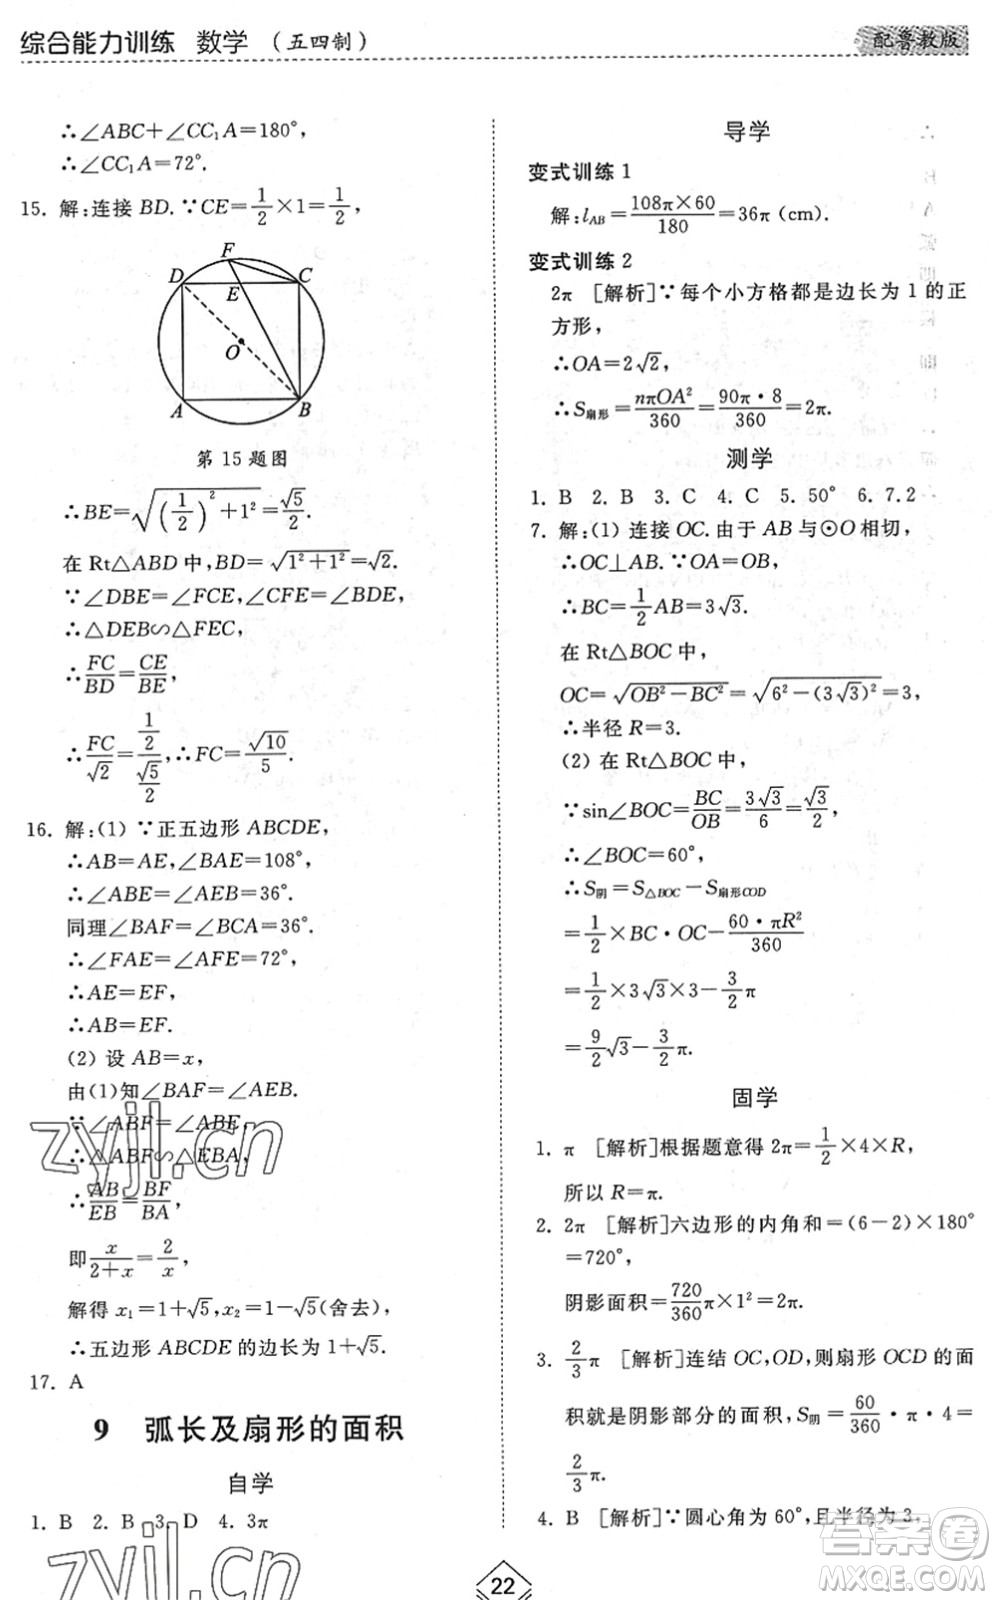 综合能力训练 数学 (五四制)
配鲁教版
∴∠ABC+∠CC₁A=180°,
∴∠CC₁A=72°.
15. 解:连接 BD.∵CE=1/2×1=1/2,
D F C E O A B
第 15 题图
∴BE=√((1/2)²+1²)=√5/2.
在 Rt△ABD 中,BD=√(1²+1²)=√2.
∵∠DBE=∠FCE,∠CFE=∠BDE,
∴△DEB∽△FEC,
∴FC/BD=CE/BE,
∴FC/√2=(1/2)/(√5/2),∴FC=√10/5.
16. 解:(1) ∵正五边形 ABCDE,
∴AB=AE,∠BAE=108°,
∴∠ABE=∠AEB=36°.
同理∠BAF=∠BCA=36°.
∴∠FAE=∠AFE=72°,
∴AE=EF,
∴AB=EF.
(2) 设 AB=x,
由(1)知∠BAF=∠AEB.
∵∠ABF=∠ABE,
∴△ABF∽△EBA,
∴AB/EB=BF/BA,
即x/(2+x)=2/x,
解得 x₁=1+√5,x₂=1-√5(舍去),
∴五边形 ABCDE 的边长为 1+√5.
17. A
9 弧长及扇形的面积
自学
1. B 2. B 3. D 4. 3π
导学
变式训练 1
解:l_AB=(108π×60)/180=36π (cm).
变式训练 2
2π [解析]∵每个小方格都是边长为 1 的正
方形,
∴OA=2√2,
∴S扇形=nπOA²/360=(90π·8)/360=2π.
测学
1. B 2. B 3. C 4. C 5. 50° 6. 7.2
7. 解:(1) 连接 OC.由于 AB 与⊙O 相切,
∴OC⊥AB.∵OA=OB,
∴BC=1/2AB=3√3.
在 Rt△BOC 中,
OC=√(OB²-BC²)=√(6²-(3√3)²)=3,
∴半径 R=3.
(2) 在 Rt△BOC 中,
∵sin∠BOC=BC/OB=3√3/6=√3/2,
∴∠BOC=60°,
∴S阴=S△BOC-S扇形COD
=1/2×BC·OC-(60·πR²)/360
=1/2×3√3×3-3/2π
=9/2√3-3/2π.
固学
1. π [解析]根据题意得 2π=1/2×4×R,
所以 R=π.
2. 2π [解析]六边形的内角和=(6-2)×180°
=720°,
阴影面积=720/360π×1²=2π.
3. 2/3π [解析]连结 OC,OD,则扇形 OCD 的面
积就是阴影部分的面积,S阴=60/360·π·4=
2/3π.
4. B [解析]∵圆心角为 60°,且半径为 3,
22
zyjl.cn
zyjl.cn
答案圈
MXQE.COM